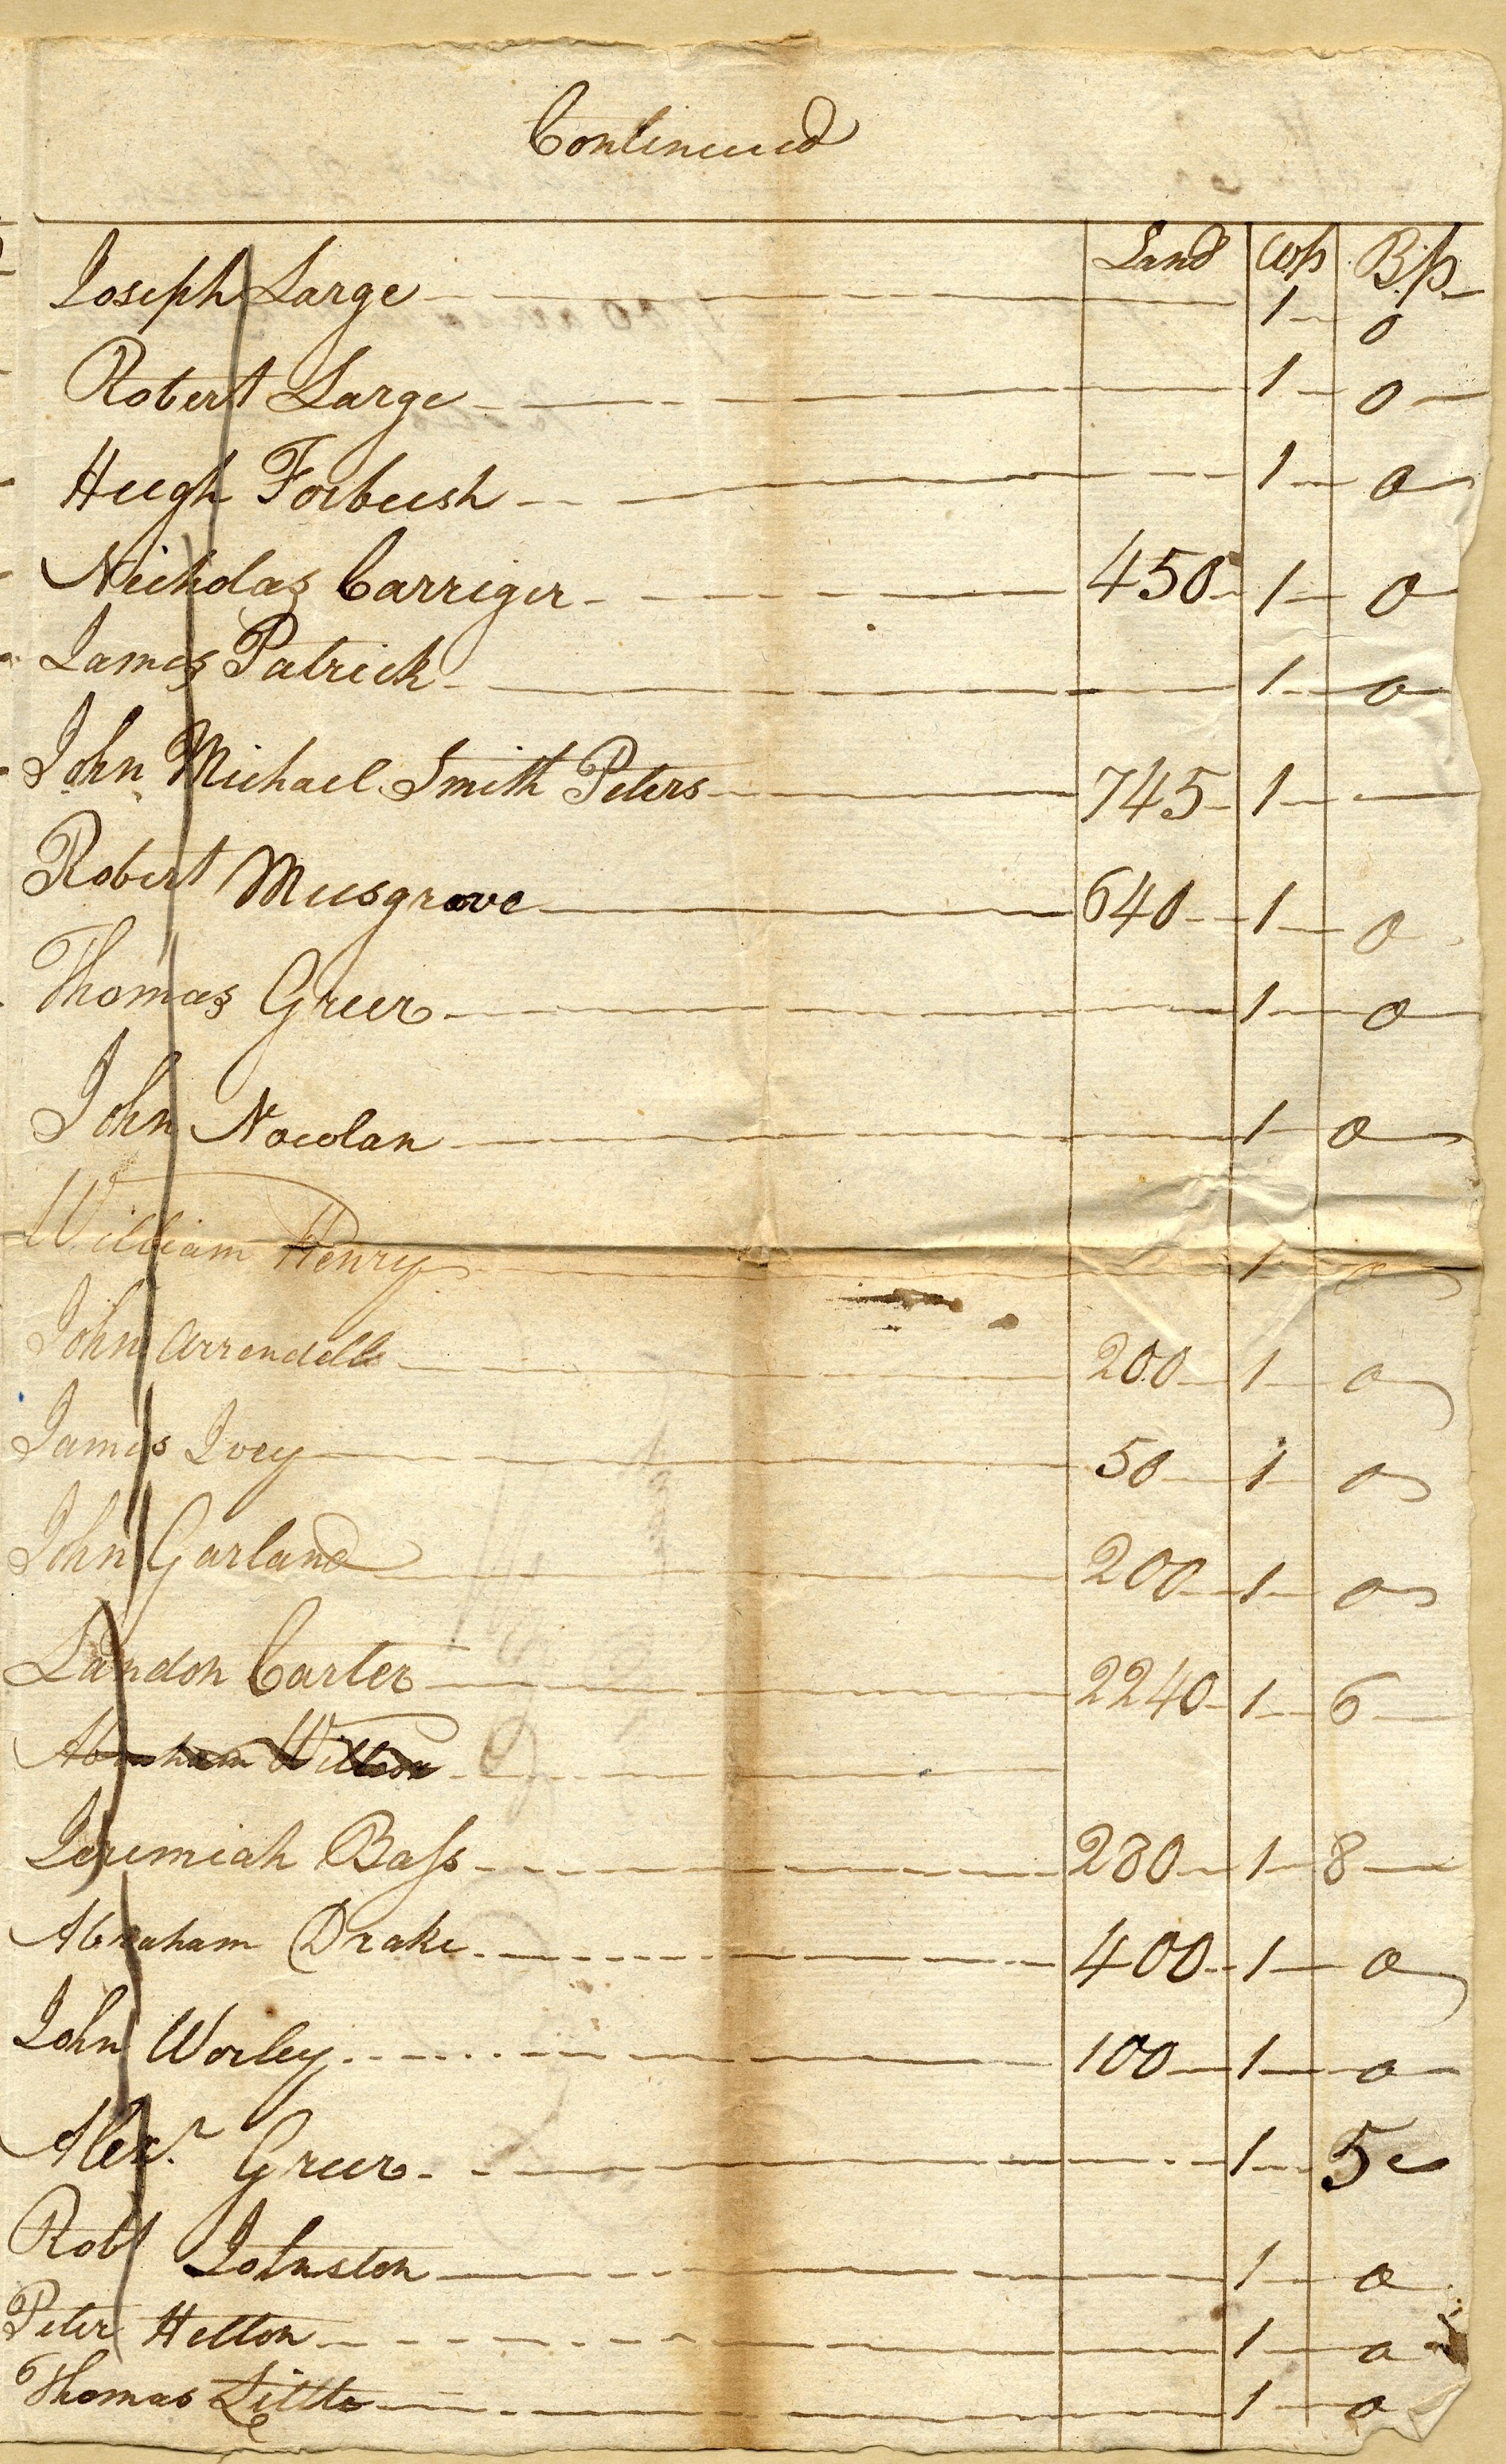 Continued
Land Wp B.p.
Joseph Large 1 0
Robert Large 1 0
Hugh Forbush 1 0
Nicholas Carriger 450 1 0
James Patrick 1 0
John Michael Smith Peters 745 1
Robert Musgrove 640 1 0
Thomas Greer 1 0
John Nowlan 1 0
William Henry 1 0
John Arrendell 200 1 0
James Ivey 50 1 0
John Garland 200 1 0
Landon Carter 2240 1 6
Abraham
Jeremiah Bass 280 1 8
Abraham Drake 400 1 0
John Worley 100 1 0
Alexr. Greer 1 5
Robt Johnston 1 0
Peter Helton 1 0
Thomas Little 1 0